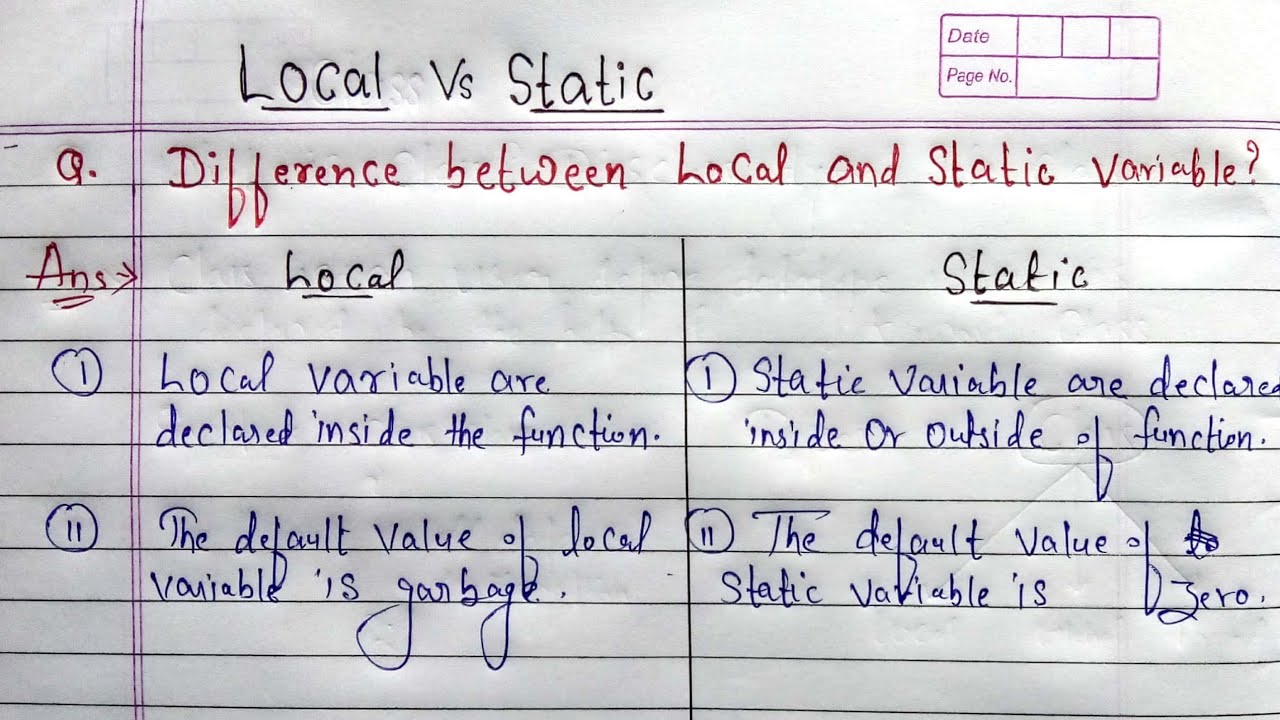 Local Vs Static
Date
Page No.
Q. Difference between Local and Static Variable?
Ans:→ Local Static
(I) Local variable are
declared inside the function.
(I) Static Variable are declared
inside or outside of function.
(II) The default value of local
variable is garbage.
(II) The default value of
Static variable is Zero.